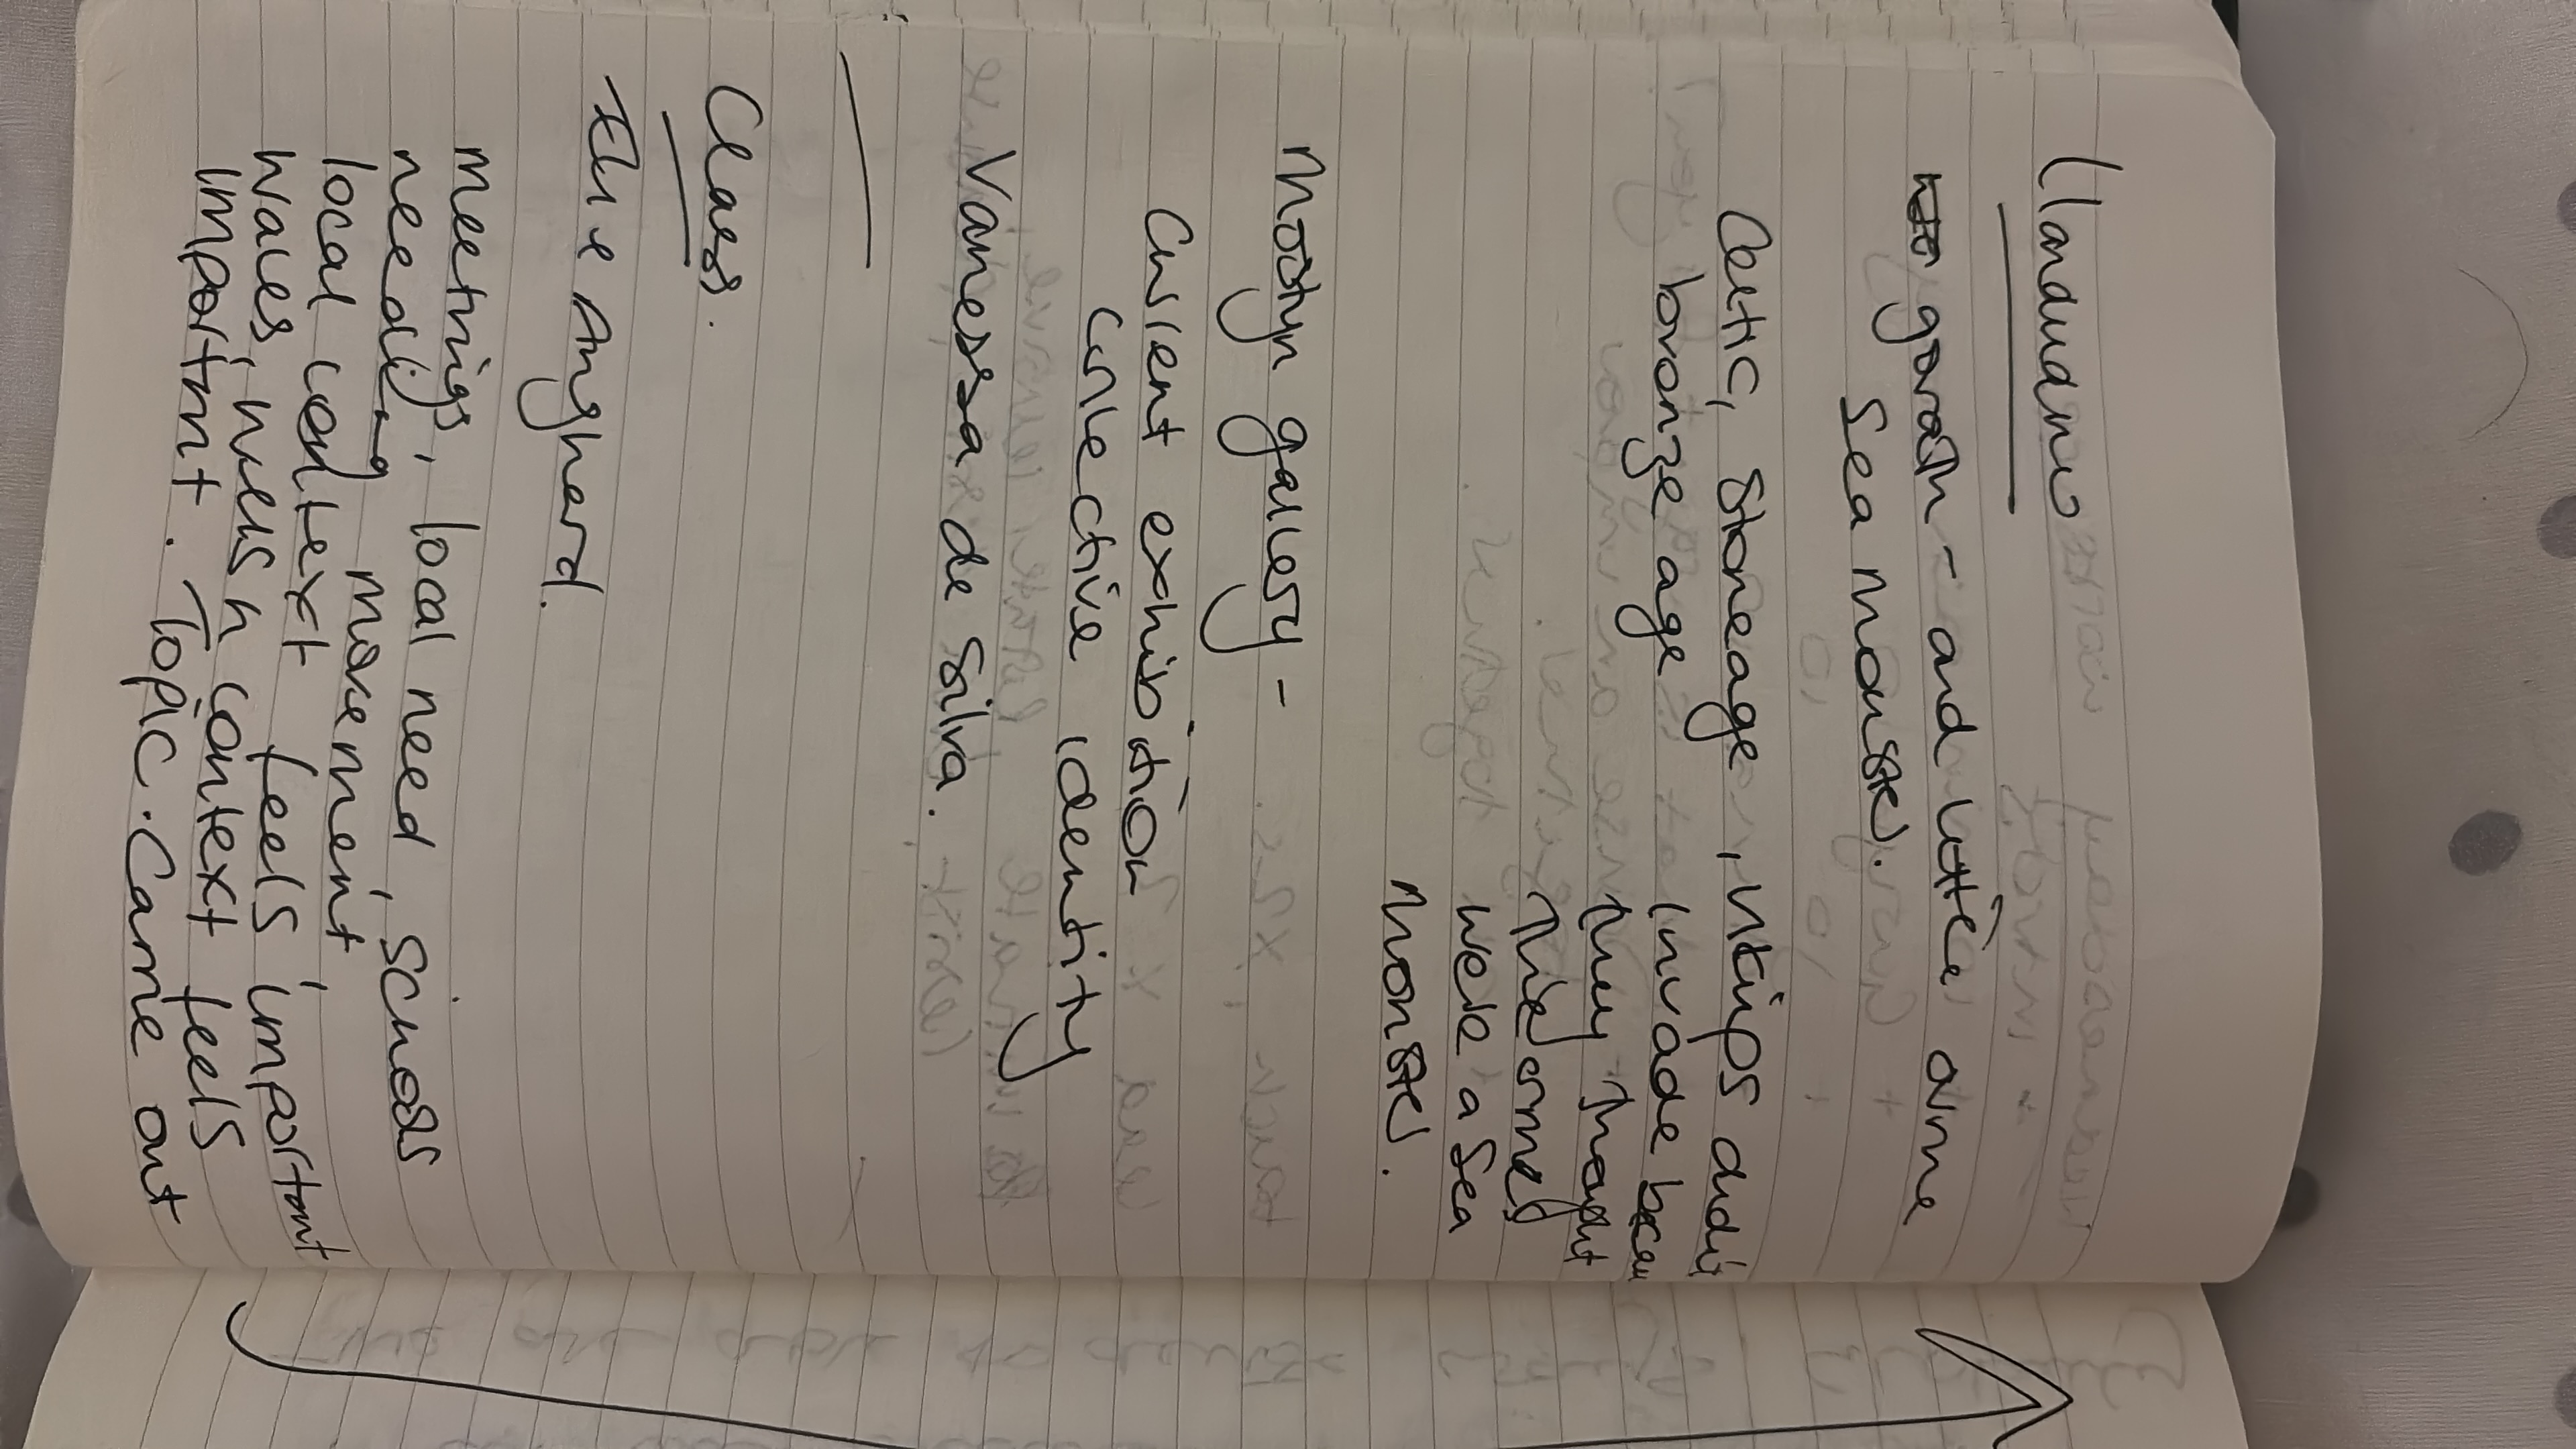 Llandudno
goram - and little orme
Sea monster.
Celtic, Stoneage, vikings didn't
bronze age invade becau
they thought
the ormes
were a sea
monster.
Mostyn gallery -
Current exhibition
Collective identity
Vanessa da Silva.
Class.
Elin e Angharad.
meetings, local need, schools
needing movement,
local context feels important
Wales, welsh context feels
important. Topic. Came out